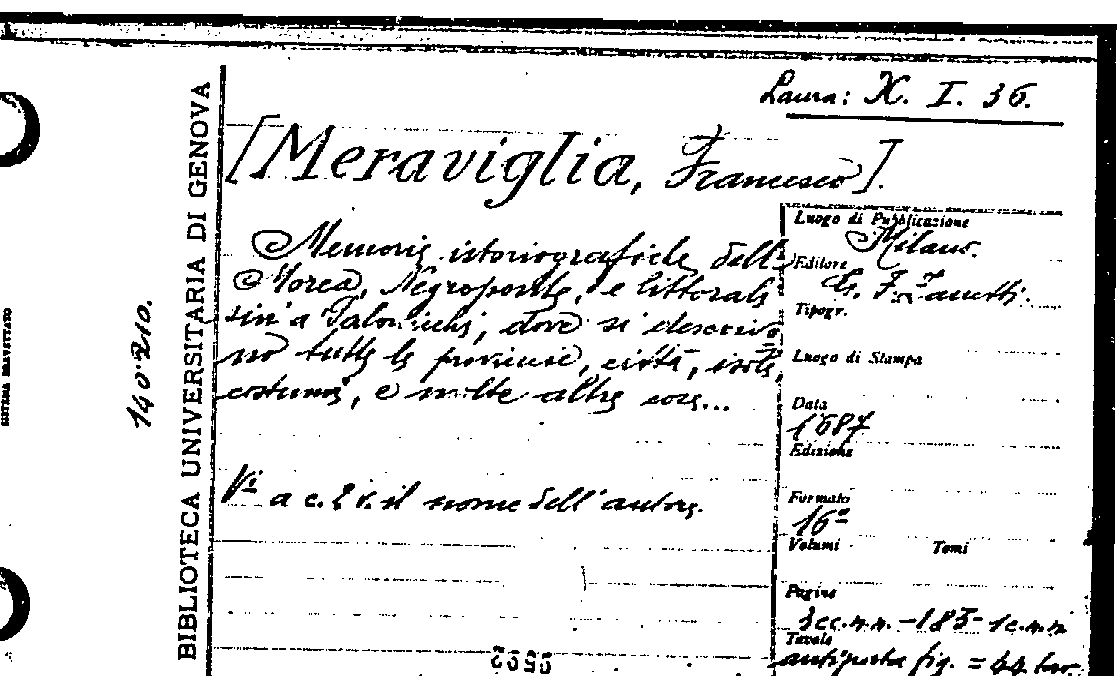 Laura: X. I. 36.
[Meraviglia, Francesco].
Memorie istoriografiche della
Morea, Negroponte, e littorale
sin'a Salonichi, dove si descrivo
no tutte le provincie, città, isole,
costumi, e molte altre cose...
Vi a c. 2 v. il nome dell'autore.
Luogo di Pubblicazione
Milano.
Editore
G. F. Zanetti.
Tipogr.
Luogo di Stampa
Data
1687
Edizione
Formato
16º
Volumi Tomi
Pagine
3cc.n.n. - 185 - 1c.n.n
Tavole
antiporta fig. = 44 tav.
BIBLIOTECA UNIVERSITARIA DI GENOVA
140210.
SISTEMA BREVETTATO